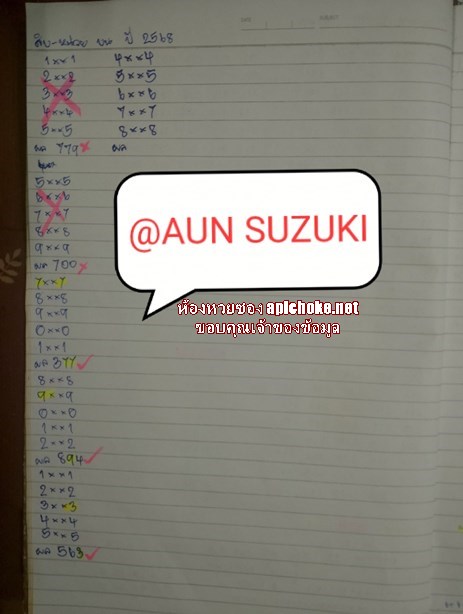 สิบ-หน่วย บน ปี 2568
1××1
2××2
3××3
4××4
5××5
ผล 779×
5××5
6××6
7××7
8××8
9××9
ผล 700×
7××7
8××8
9××9
0××0
1××1
ผล 377✓
8××8
9××9
0××0
1××1
2××2
ผล 894✓
1××1
2××2
3××3
4××4
5××5
ผล 563✓
4××4
5××5
6××6
7××7
8××8
ผล
@AUN SUZUKI
ห้องหวยซอง apichoke.net
ขอบคุณเจ้าของข้อมูล